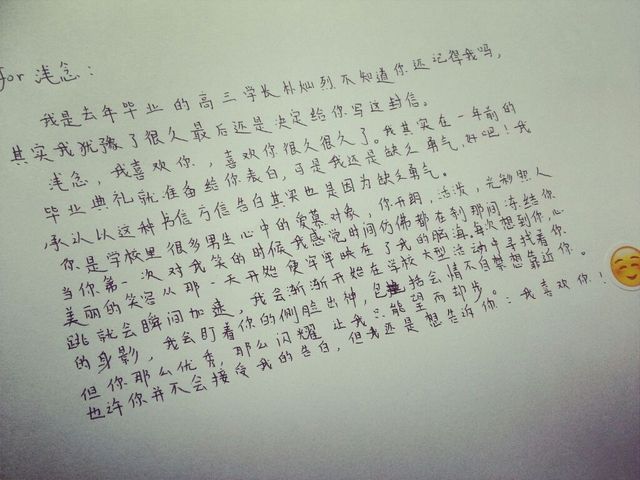 for 浅念：
我是去年毕业的高三学长朴灿烈不知道你还记得我吗，
其实我犹豫了很久最后还是决定给你写这封信。
浅念，我喜欢你，喜欢你很久很久了。我其实在一年前的
毕业典礼就准备给你表白，可是我还是缺乏勇气，好吧！我
承认以这种书信方信告白其实也是因为缺乏勇气。
你是学校里很多男生心中的爱慕对象，你开朗，活泼，光彩照人
当你第一次对我笑的时候我感觉时间仿佛都在刹那间冻结你
美丽的笑容从那一天开始便牢牢映在了我的脑海。每次想到你，心
跳就会瞬间加速，我会渐渐开始在学校大型活动中寻找着你
的身影，我会盯着你的侧脸出神，包括会情不自禁想靠近你。
但你那么优秀，那么闪耀让我只能望而却步。
也许你并不会接受我的告白，但我还是想告诉你：我喜欢你！